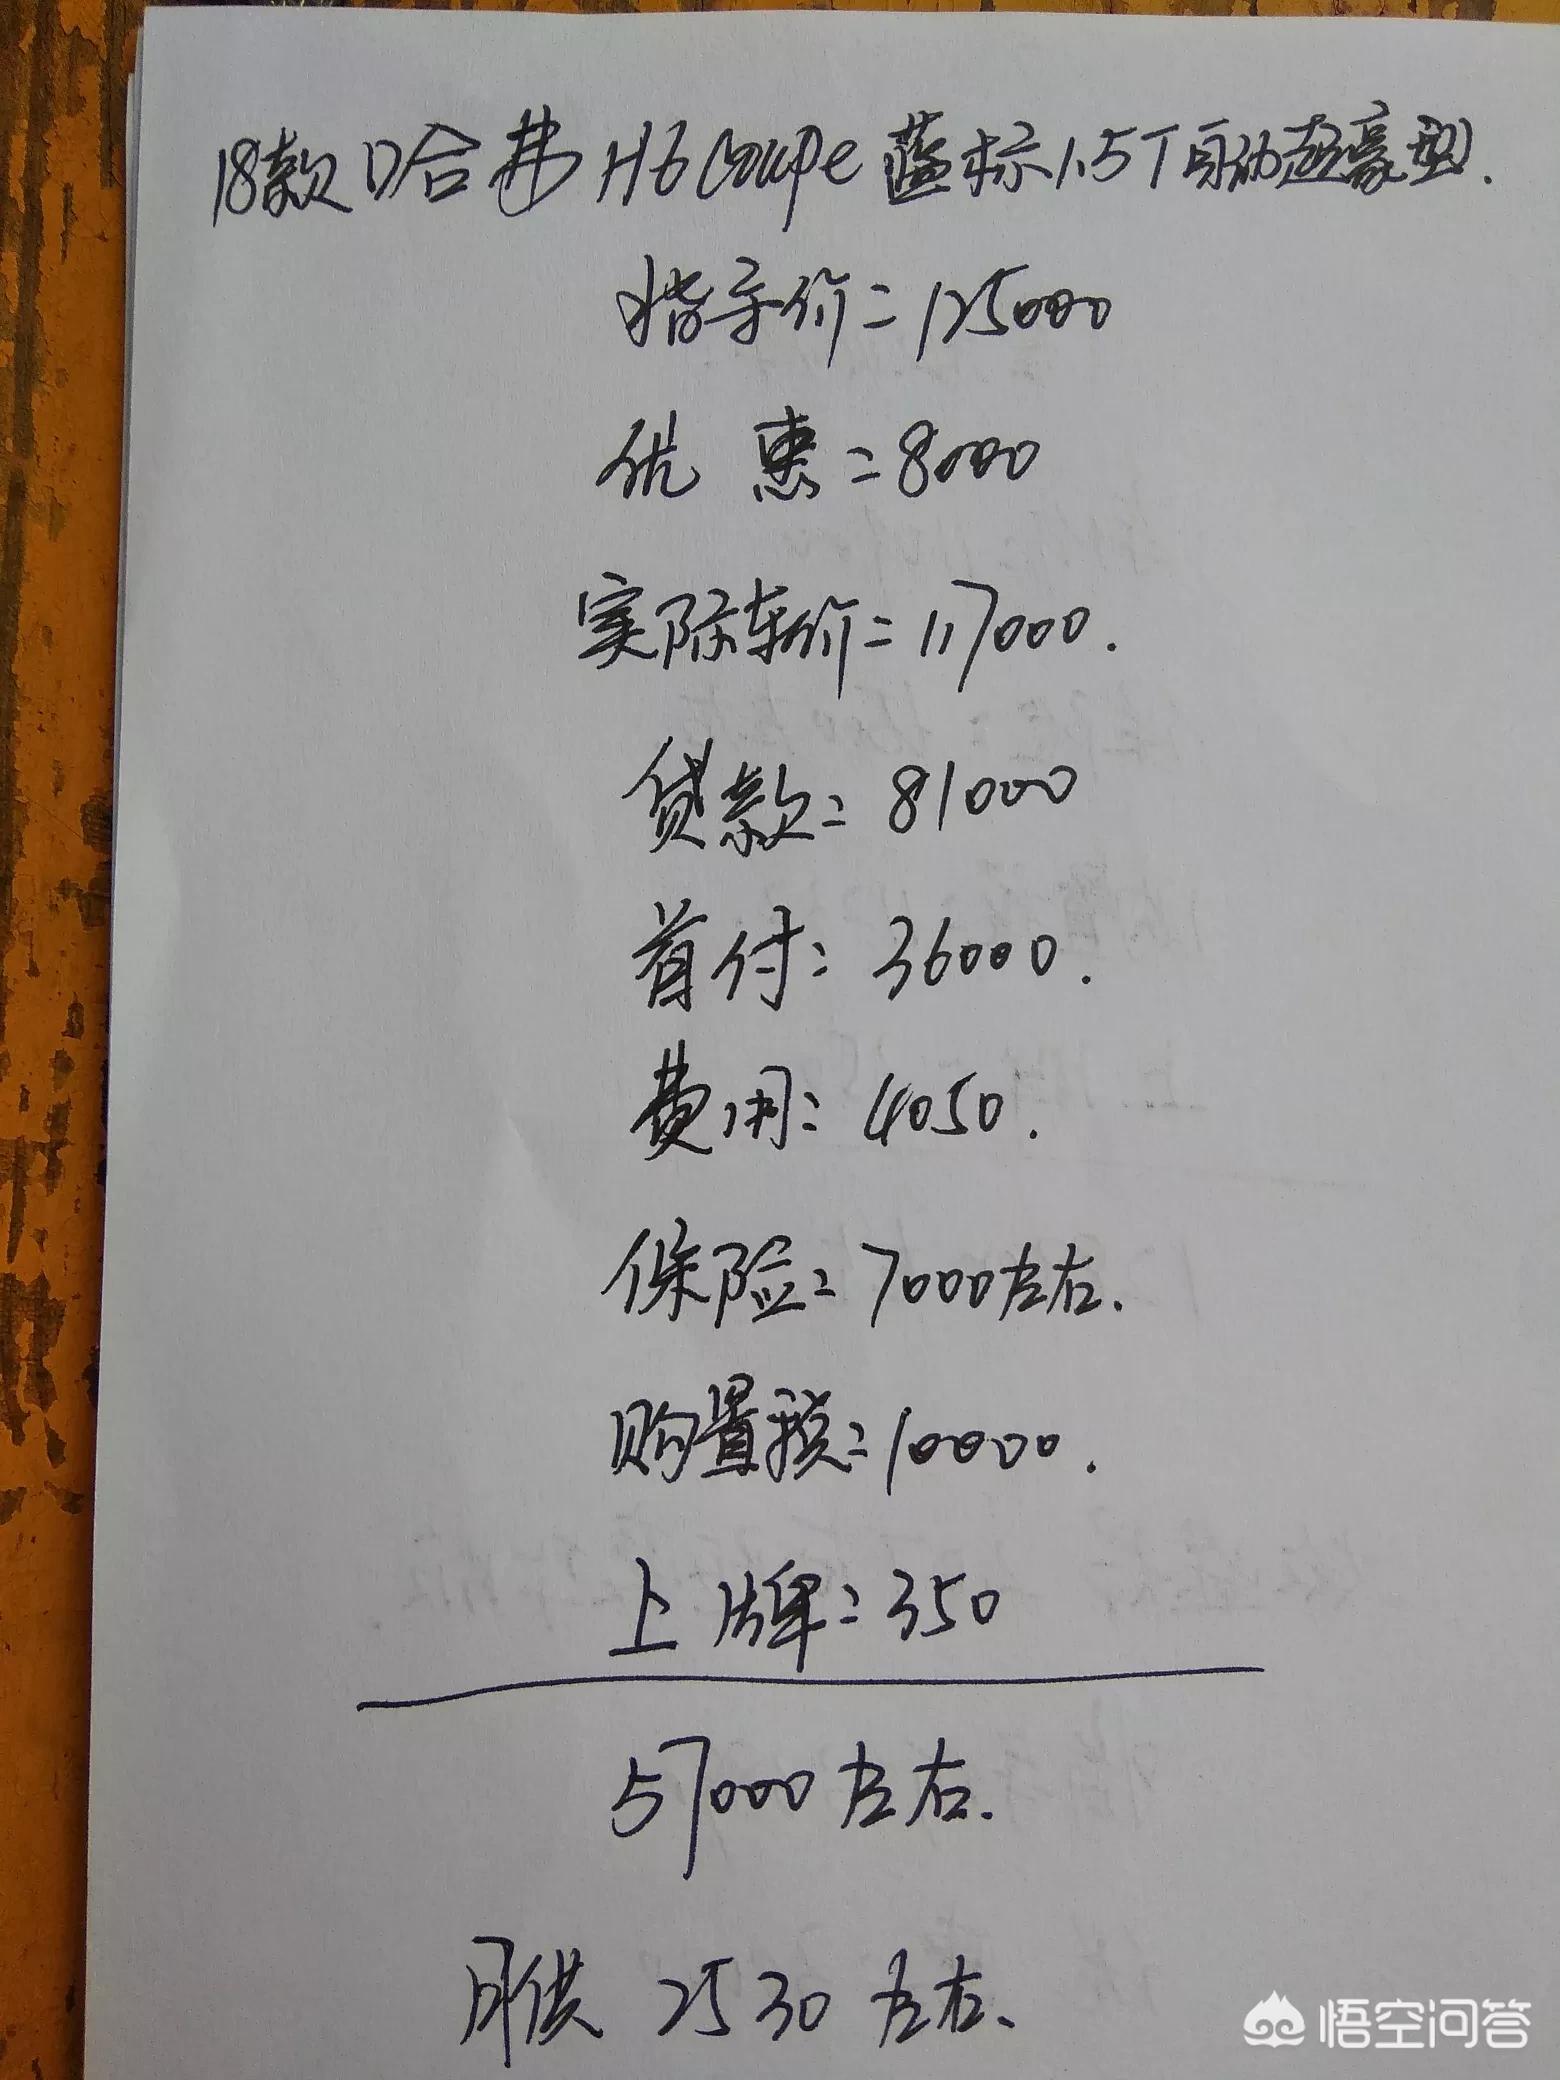 18款哈弗H6Coupe蓝标1.5T自动超豪型.
指导价=125000
优惠=8000
实际车价=117000.
贷款=81000
首付=36000.
费用=4050.
保险=7000左右.
购置税=10000.
上牌=350
57000左右.
月供 2530左右、
悟空问答